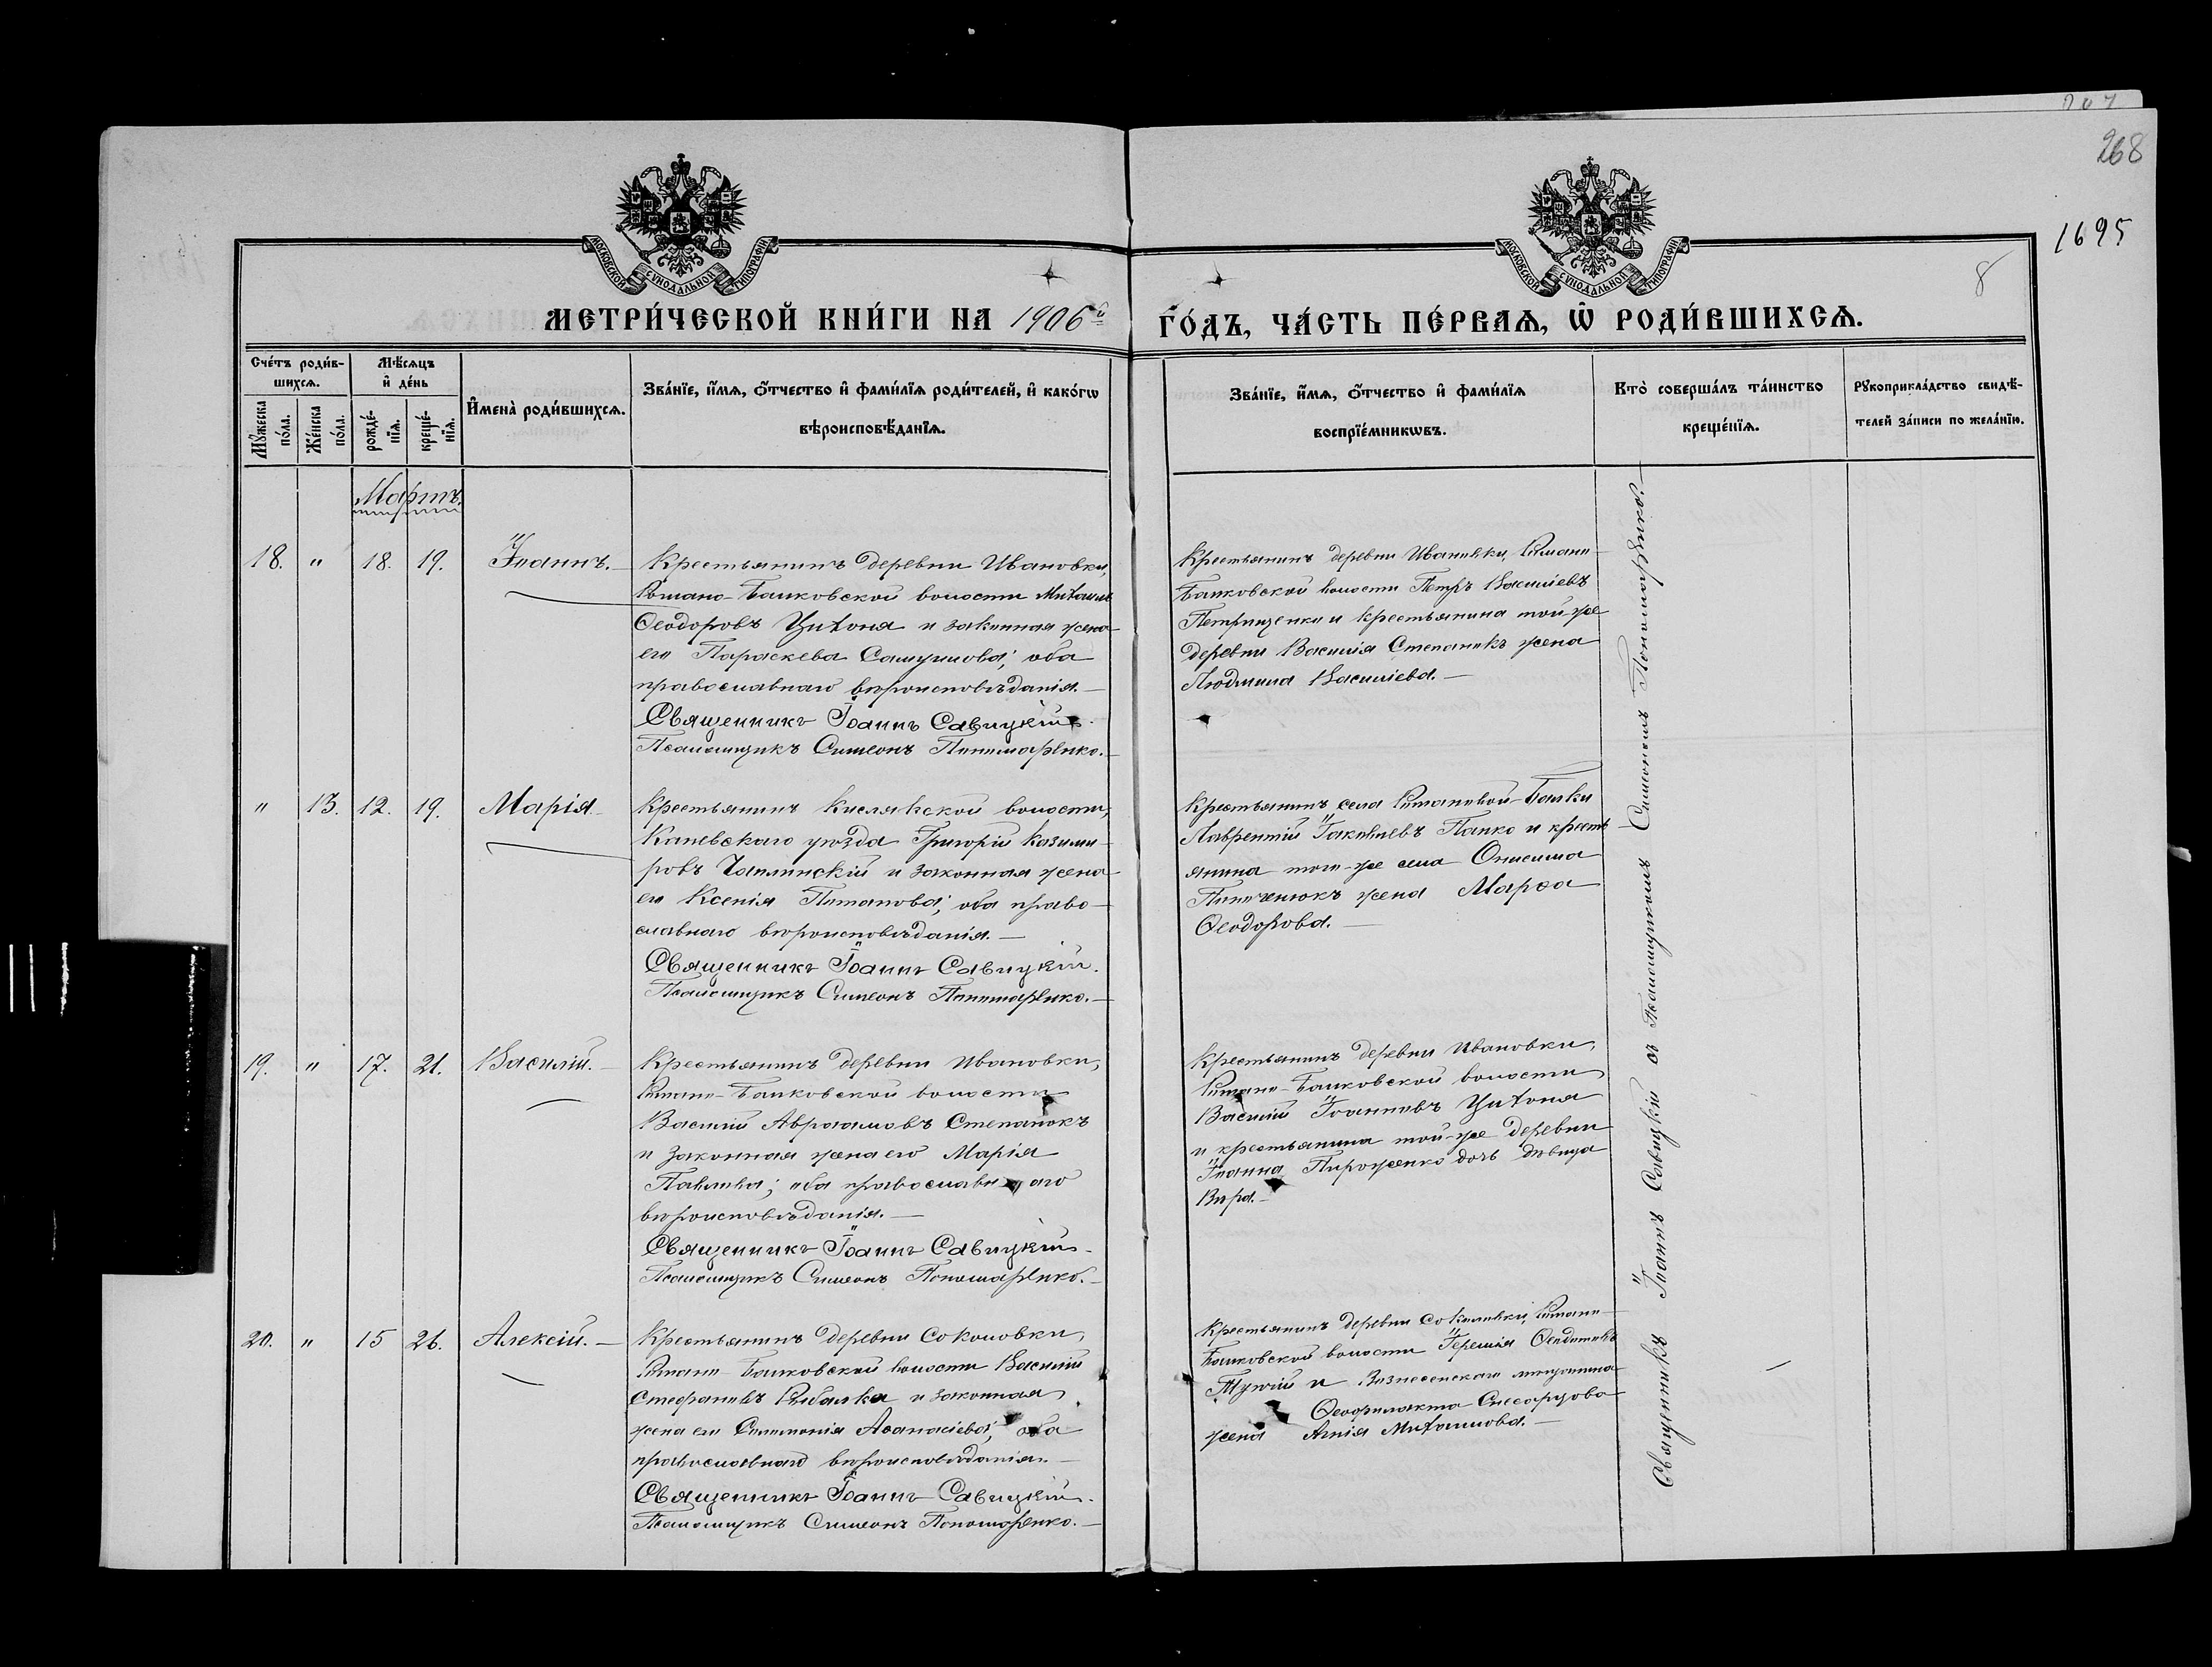 268
1695
8
МОСКОВСКОЙ СѴНОДАЛЬНОЙ ТИПОГРАФІИ
МОСКОВСКОЙ СѴНОДАЛЬНОЙ ТИПОГРАФІИ
МЕТРИ́ЧЕСКОЙ КНИ́ГИ НА 1906й ГО́ДЪ, ЧА́СТЬ ПЕ́РВАѦ, Ѡ҆ РОДИ́ВШИХСѦ.
Сче́тъ роди́в-
шихсѧ.
Мꙋ́жеска по́ла.
Же́нска по́ла.
Мѣ́сѧцъ и҆ де́нь
рожде́-
нїѧ.
креще́-
нїѧ.
И҆мена̀ роди́вшихсѧ.
Зва́нїе, и҆́мѧ, ѻ҆́тчество и҆ фами́лїѧ роди́телей, и҆ како́гѡ
вѣроисповѣ́данїѧ.
Зва́нїе, и҆́мѧ, ѻ҆́тчество и҆ фами́лїѧ
воспрїе́мникѡвъ.
Кто̀ соверша́лъ та́инство
креще́нїѧ.
Рꙋкоприкла́дство свидѣ́-
телей за́писи по жела́нїю.
Мартъ.
18. " 18. 19. Іоаннъ.
Крестьянинъ деревни Ивановки,
Романо-Балковской волости Михаилъ
Ѳеодоровъ Цихоня и законная жена
его Параскева Самуилова; оба
православнаго вѣроисповѣданія.
Священникъ Іоаннъ Савицкій.
Псаломщикъ Симеонъ Пономаренко.
Крестьянинъ деревни Ивановки, Романо-
Балковской волости Петръ Василіевъ
Петрищенко и крестьянина той-же
деревни Василія Степанокъ жена
Людмила Василіева.
" 13. 12. 19. Марія.
Крестьянинъ Кислякской волости,
Каневскаго уѣзда Григорій Казими-
ровъ Чаплинскій и законная жена
его Ксенія Потапова; оба право-
славнаго вѣроисповѣданія.
Священникъ Іоаннъ Савицкій.
Псаломщикъ Симеонъ Пономаренко.
Крестьянинъ села Романовой-Балки
Лаврентій Іаковлевъ Папко и кресть-
янина того-же села Онисима
жена Марѳа
Ѳеодорова.
19. " 17. 21. Василій.
Крестьянинъ деревни Ивановки,
Романо-Балковской волости
Василій Авраамовъ Степанокъ
и законная жена его Марія
Павлова; оба православнаго
вѣроисповѣданія.
Священникъ Іоаннъ Савицкій.
Псаломщикъ Симеонъ Пономаренко.
Крестьянинъ деревни Ивановки,
Романо-Балковской волости
Василій Іоанновъ Цихоня
и крестьянина той-же деревни
Іоанна Пироженко дочь дѣвица
Вѣра.
20. " 15 26. Алексій.
Крестьянинъ деревни Соколовки,
Романо-Балковской волости Василій
Стефановъ Рыбалка и законная
жена его Соломонія Аѳанасіева; оба
православнаго вѣроисповѣданія.
Священникъ Іоаннъ Савицкій.
Псаломщикъ Симеонъ Пономаренко.
Крестьянинъ деревни Соколовки, Романо-
Балковской волости Іеремія
и Вознесенскаго мѣщанина
Ѳеофилакта
жена Михаилова.
Священникъ Іоаннъ Савицкій съ Псаломщикомъ Симеономъ Пономаренко.